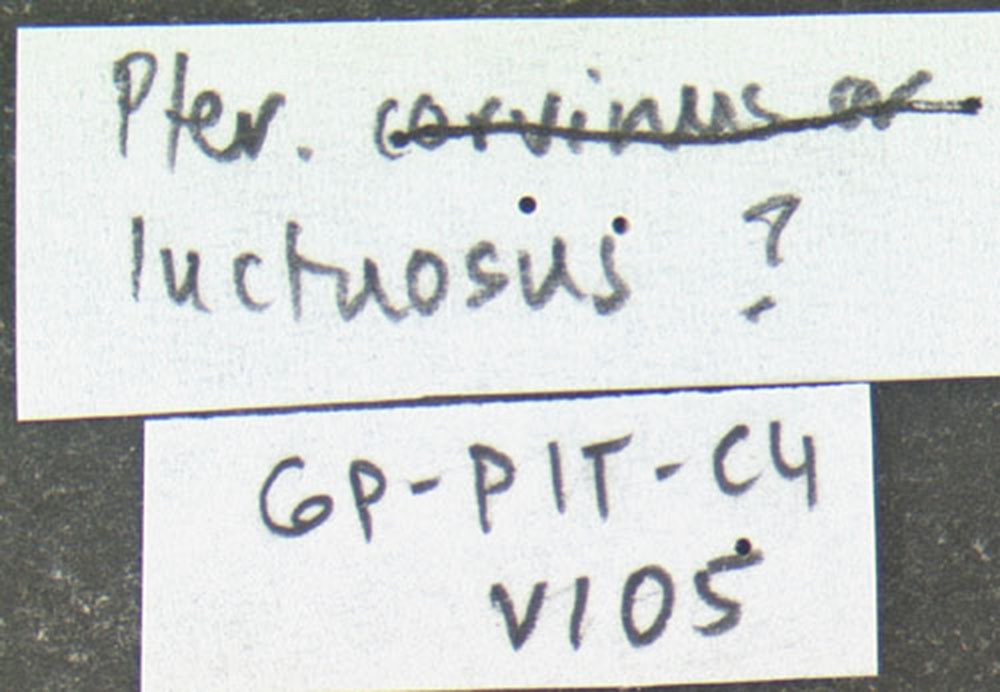 Pter. corvinus or
luctuosus ?
GP-PIT-C4
V105